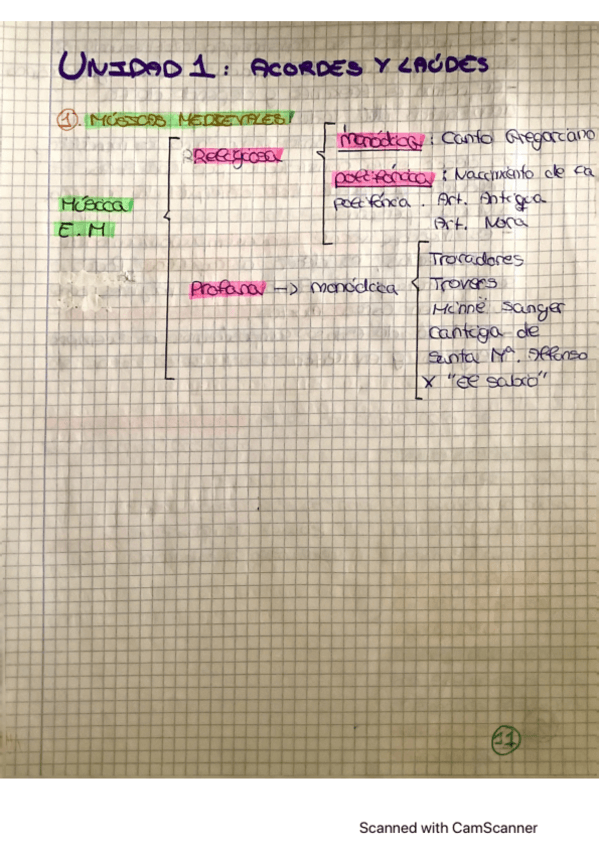 UNIDAD 1: ACORDES Y LAÚDES
1. MÚSICAS MEDIEVALES!
Música
E.M
Religiosa
monódica: Canto Gregoriano
polifónica: Nacimiento de la
polifonía. Art. Antigua
Art. Nova
Profana -> monódica
Trovadores
Trovers
Minne Sanger
Cantiga de
Santa Mª. Alfonso
X "El Sabio"
11
Scanned with CamScanner